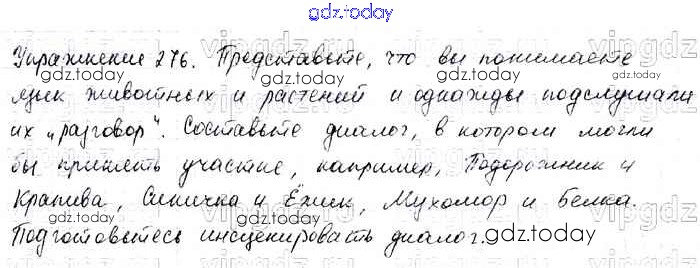 gdz.today
Упражнение 276. Представьте, что вы понимаете
gdz.today gdz.today
язык животных и растений и однажды подслушали
их „разговор“. Составьте диалог, в котором могли
gdz.today gdz.today
бы принять участие, например, Подорожник и
Крапива, Синичка и Ёжик, Мухомор и Белка.
gdz.today gdz.today
Подготовьтесь инсценировать диалог.
gdz.today